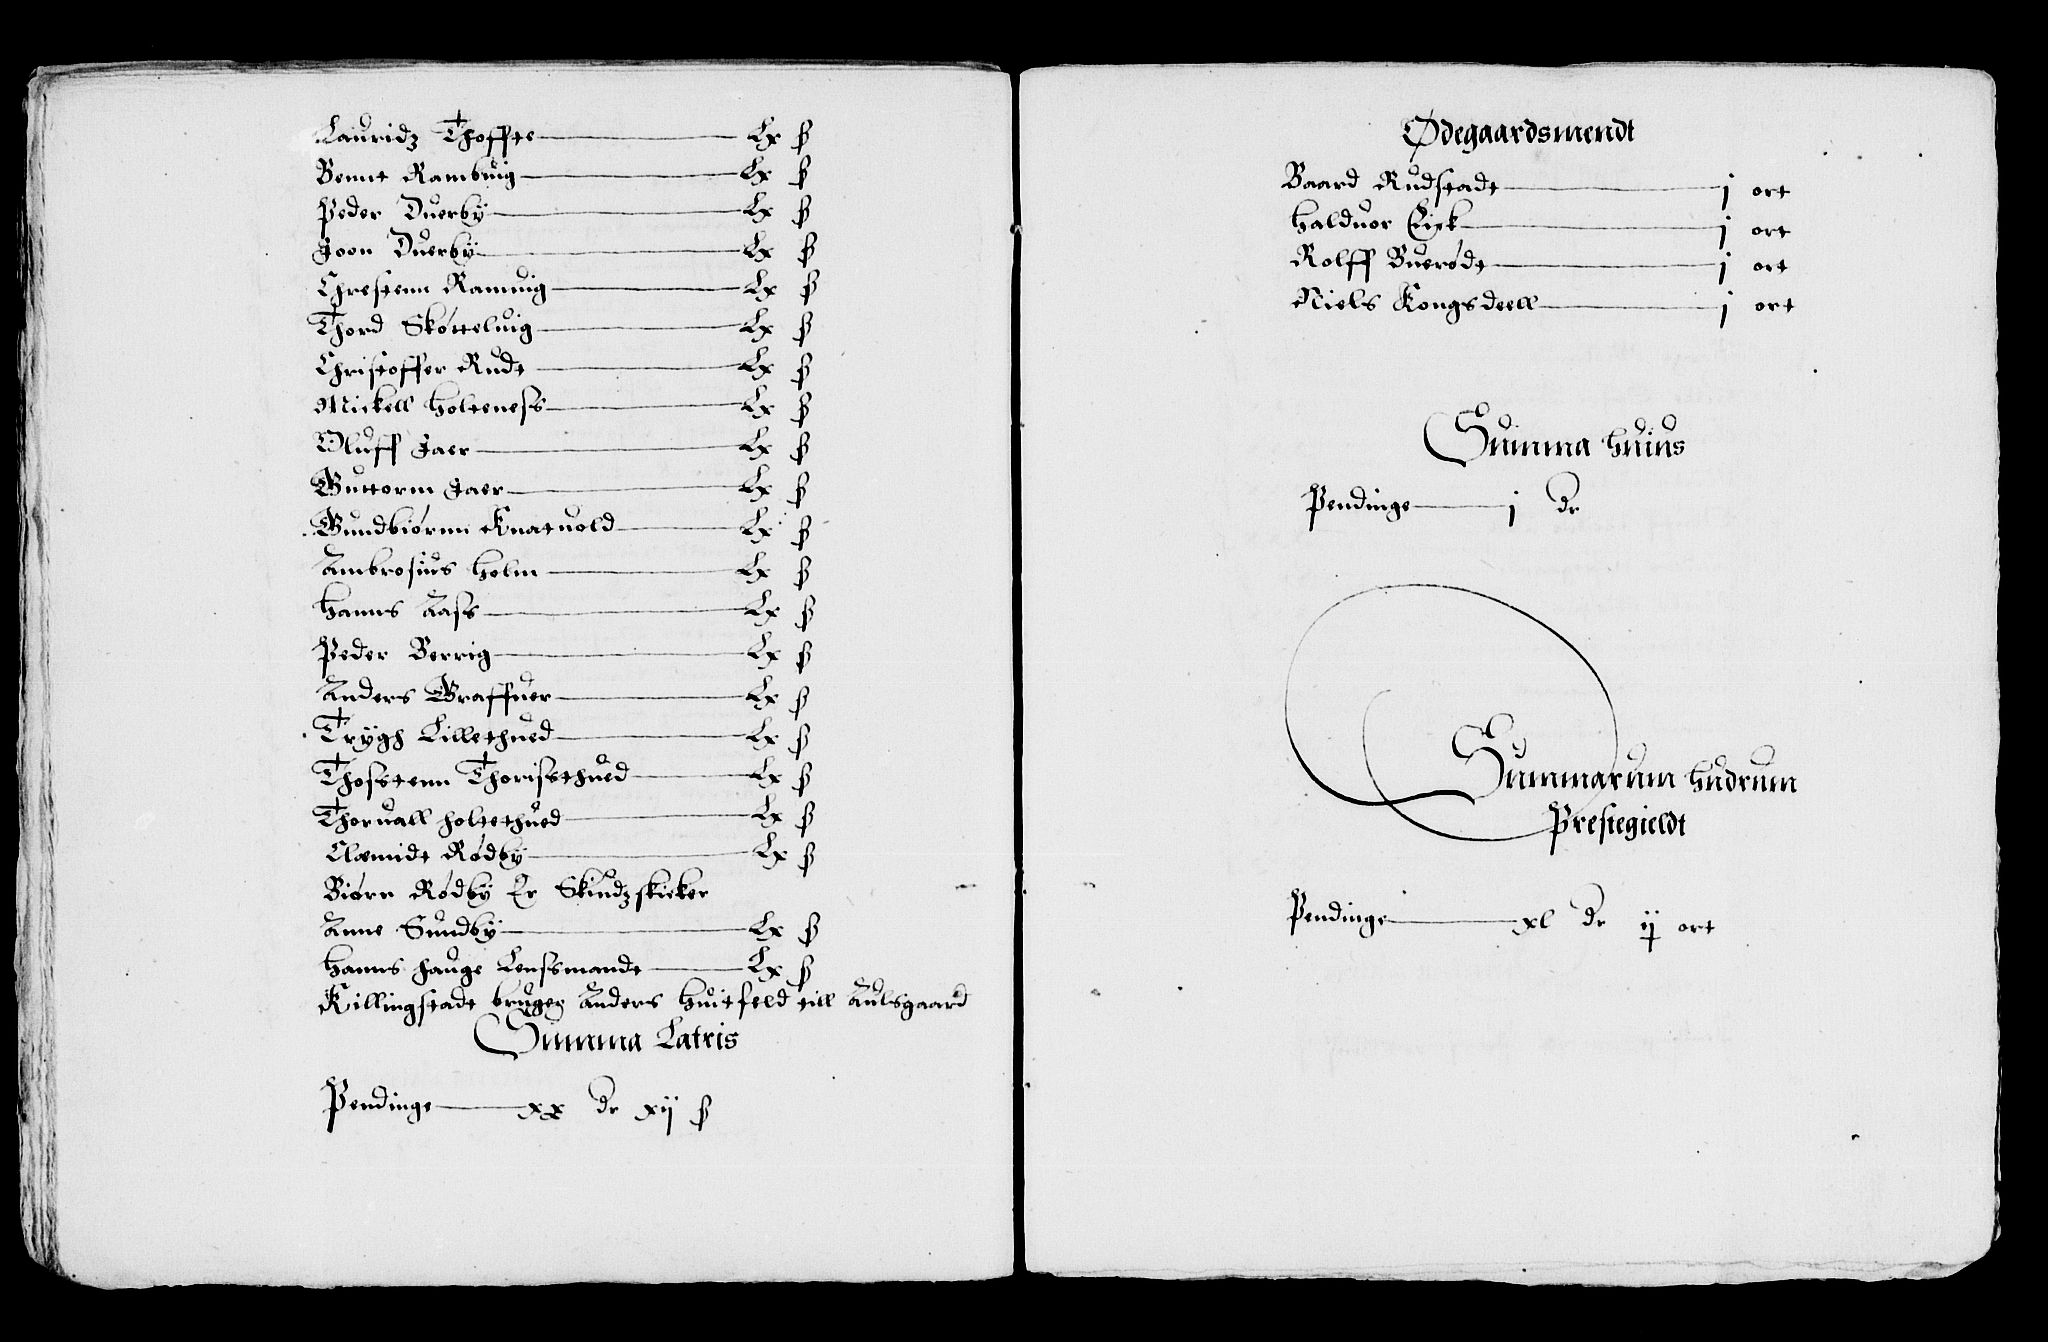 Lauridz Thoffte Lx ß
Bennt Rambuig Lx ß
Peder Duerby Lx ß
Joon Duerby Lx ß
Chrestenn Ramuig Lx ß
Thord Skøtteluig Lx ß
Christoffer Rudt Lx ß
Mickell Holteness Lx ß
Oluff Jaer Lx ß
Guttorm Jaer Lx ß
Gundbiørnn Knatuold Lx ß
Ambrosius Holm Lx ß
Hanns Aass Lx ß
Peder Berrig Lx ß
Anders Graffuer Lx ß
Trygh Lillethued Lx ß
Thosstenn Thorissthued Lx ß
Thoruall Holtethued Lx ß
Clæmidt Rødby Lx ß
Biørn Rødby Er Skindzskieker
Anne Sundby Lx ß
Hanns Hauge Lenssmandt Lx ß
Killingstadt bruger Anders Huitfeld till Aulsgaard
Summa Latris
Pendinge xx dr xij ß
Ødegaardsmendt
Baard Rudstadt j ort
Halduor Eigk j ort
Rolff Buerødt j ort
Niels Kongsdeell j ort
Summa huius
Pendinge j dr
Summarum Hudrum
Prestegieldt
Pendinge xl dr ij ort